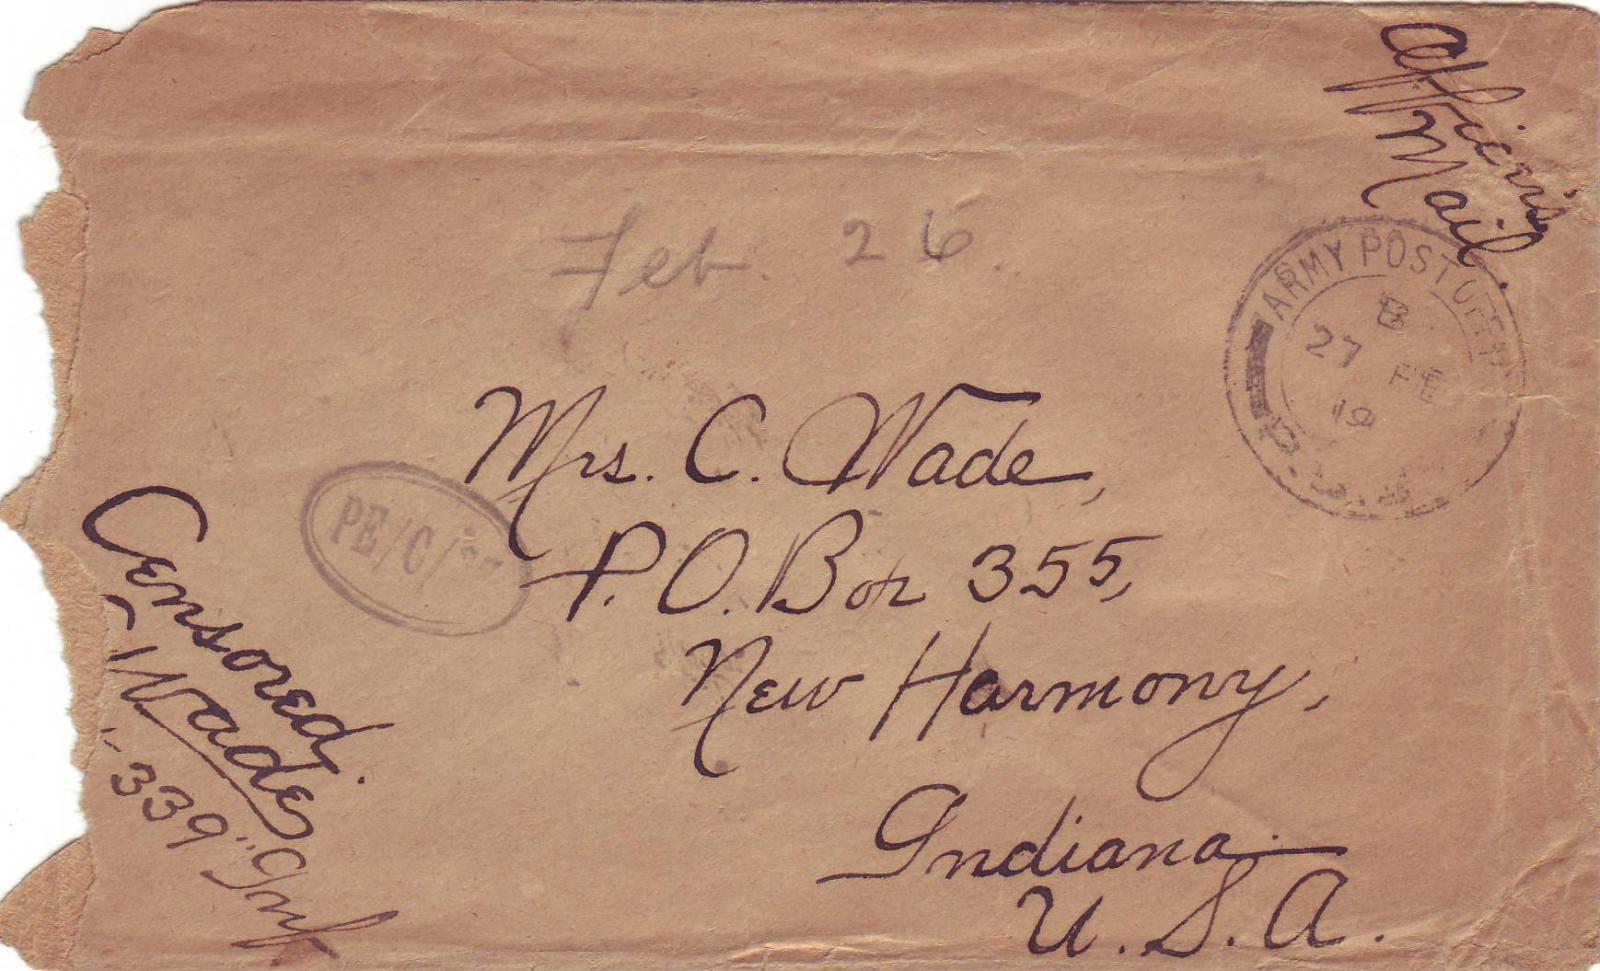 Officer's
Mail.
Feb. 26
ARMY POST OFFI
B
27 FE
19
Mrs. C. Wade,
P.O. Box 355,
New Harmony,
Indiana
U.S.A.
PE/C/
Censored.
Wade
339" Inf